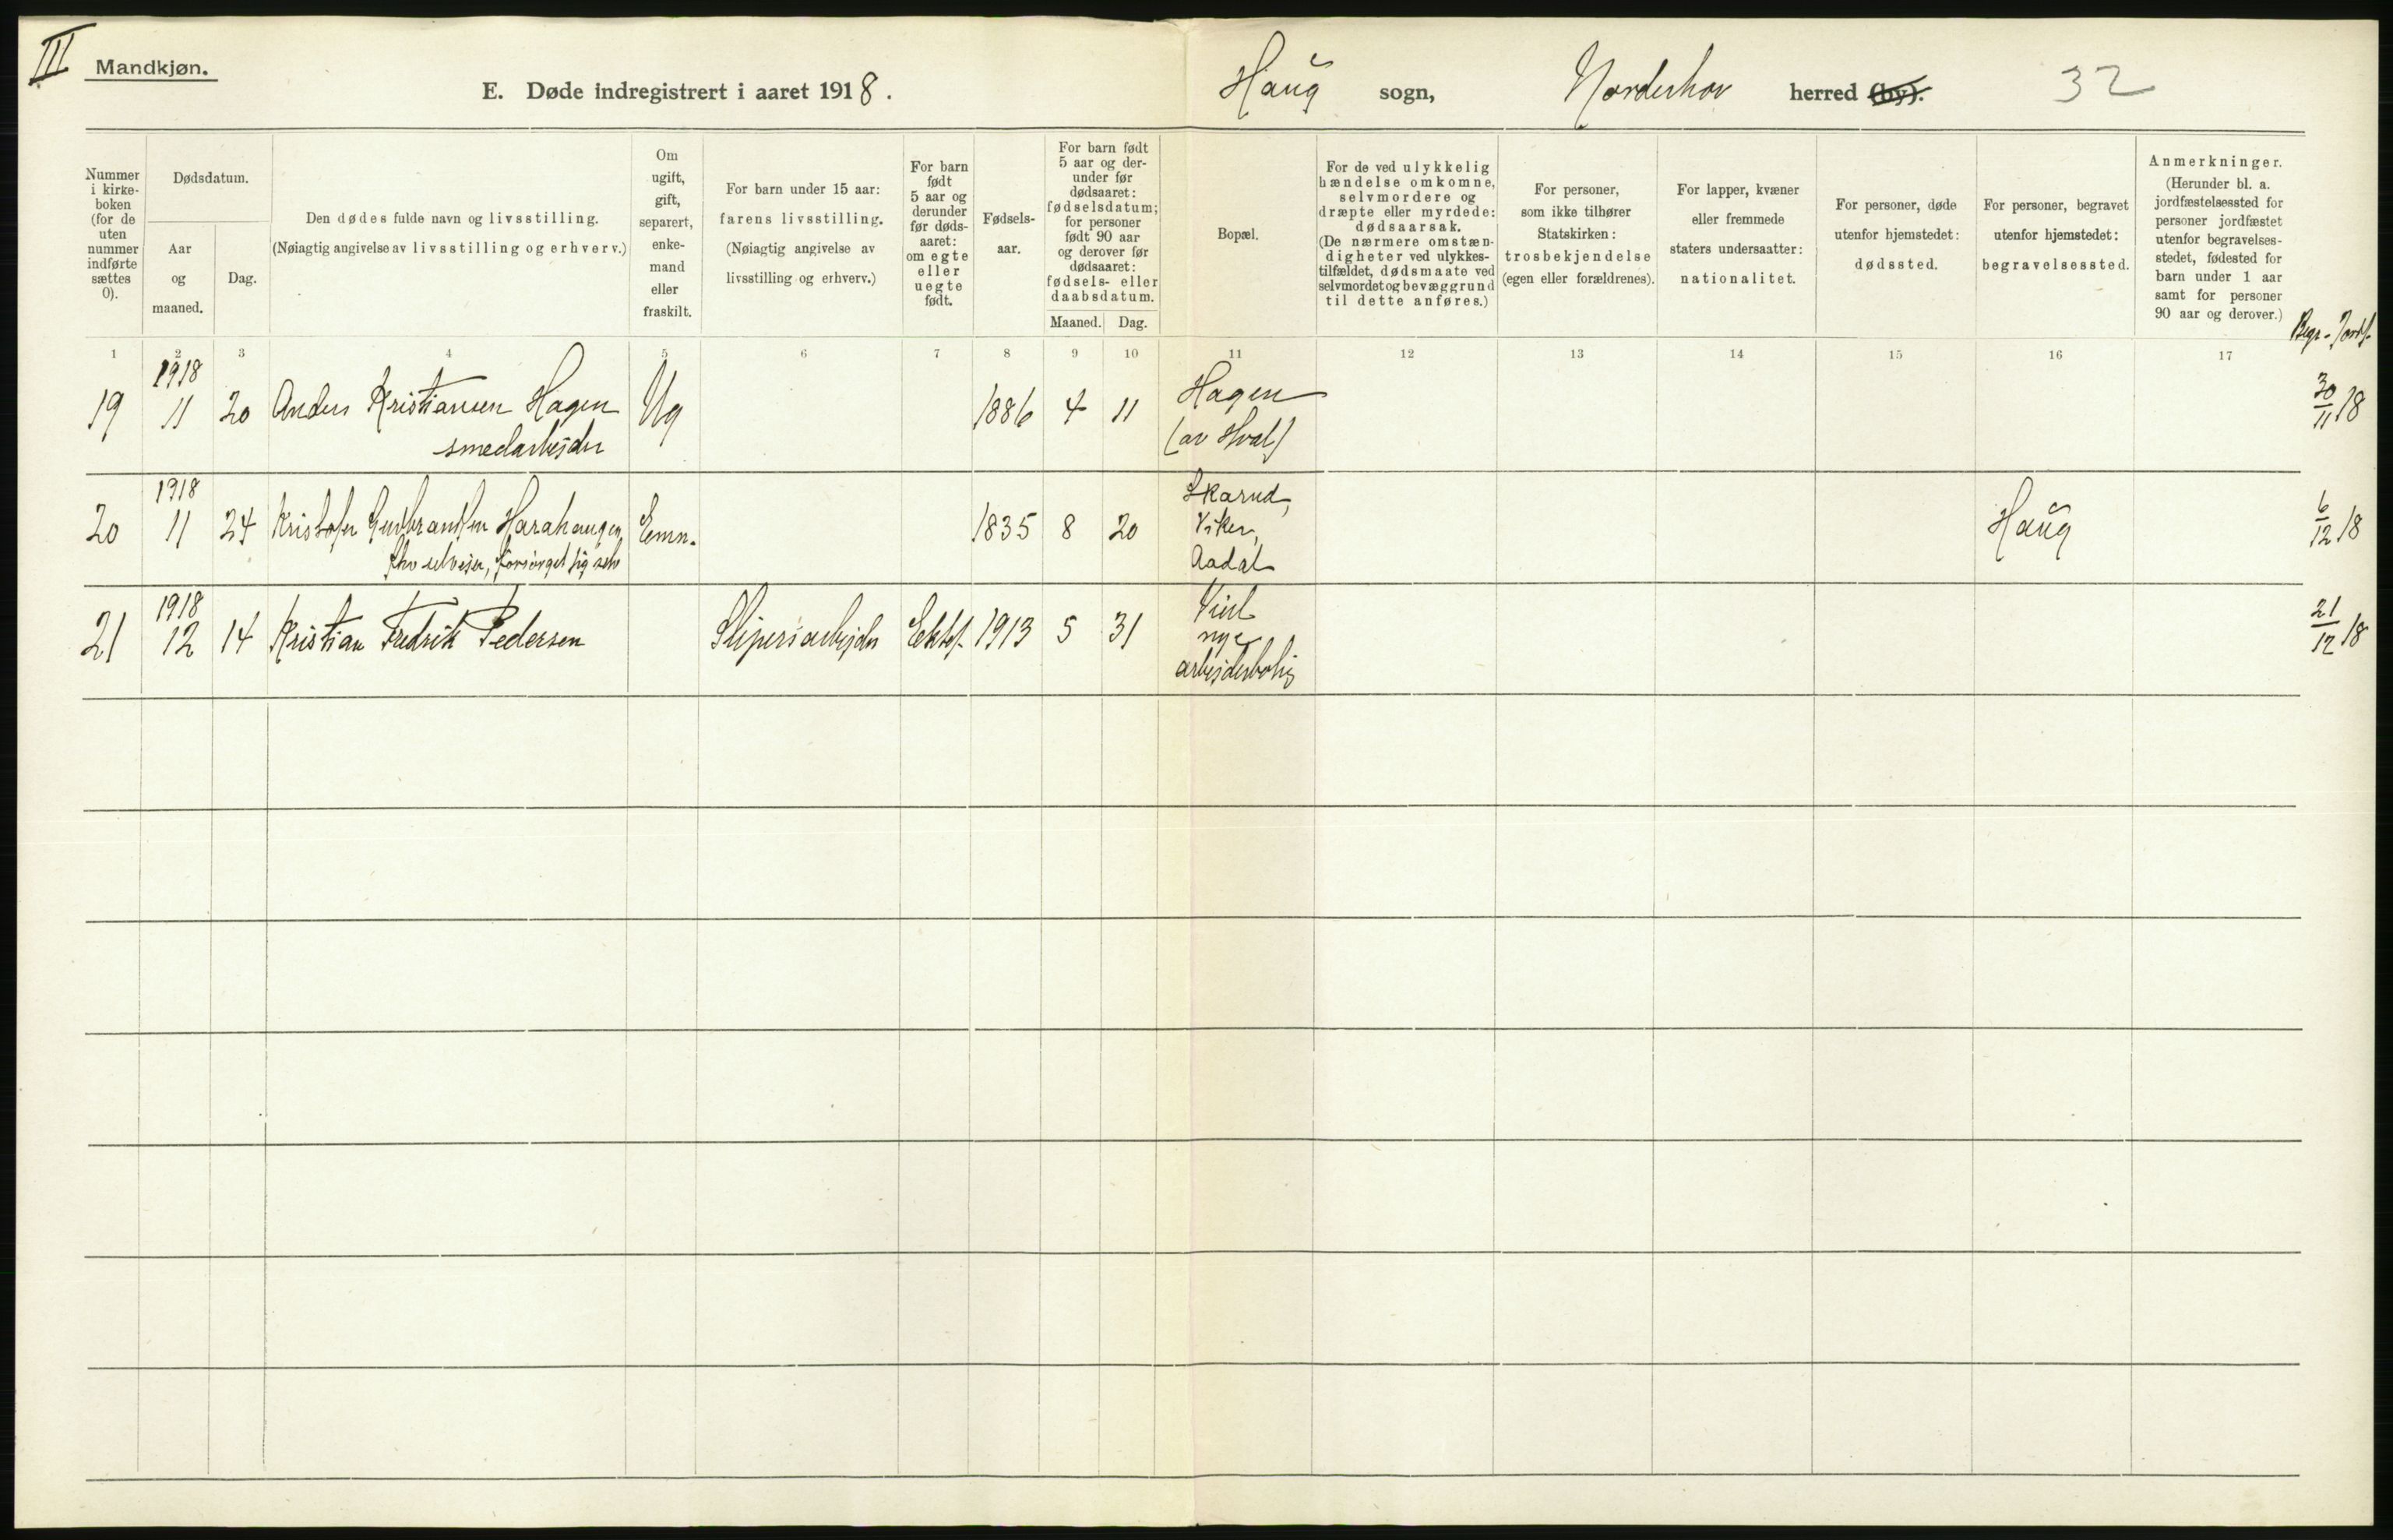 III
Mandkjøn.
E. Døde indregistrert i aaret 1918.
Haug sogn, Norderhov herred (by). 32
Nummer i kirke-boken (for de uten nummer indførte sættes 0).
Dødsdatum.
Aar og maaned.
Dag.
Den dødes fulde navn og livsstilling.
(Nøiagtig angivelse av livsstilling og erhverv.)
Om ugift, gift, separert, enke-mand eller fraskilt.
For barn under 15 aar:
farens livsstilling.
(Nøiagtig angivelse av livsstilling og erhverv.)
For barn født 5 aar og derunder før døds-aaret: om egte eller uegte født.
Fødsels-aar.
For barn født 5 aar og der-under før dødsaaret: fødselsdatum; for personer født 90 aar og derover før dødsaaret: fødsels- eller daabsdatum.
Maaned. Dag.
Bopæl.
For de ved ulykkelig hændelse omkomne, selvmordere og dræpte eller myrdede: dødsaarsak.
(De nærmere omstæn-digheter ved ulykkes-tilfældet, dødsmaate ved selvmordet og bevæggrund til dette anføres.)
For personer, som ikke tilhører Statskirken: trosbekjendelse (egen eller forældrenes).
For lapper, kvæner eller fremmede staters undersaatter: nationalitet.
For personer, døde utenfor hjemstedet: dødssted.
For personer, begravet utenfor hjemstedet: begravelsessted.
Anmerkninger.
(Herunder bl. a. jordfæstelsessted for personer jordfæstet utenfor begravelses-stedet, fødested for barn under 1 aar samt for personer 90 aar og derover.)
Begr.- Jordf.
1 2 3 4 5 6 7 8 9 10 11 12 13 14 15 16 17
1918
19 11 20 Anders Kristiansen Hagen Ug 1886 4 11 Hagen 30/11 18
smedarbeider (av Hval)
1918 Skarud,
20 11 24 Kristofer Gudbrandsen Harahaugen Emn. 1835 8 20 Viker, Haug 6/12 18
fhv selveier, forsørget sig selv Aadal
1918
21 12 14 Kristian Fredrik Pedersen Sliperiarbejder Ektef. 1913 5 31 21/12 18
nye
arbejderbolig